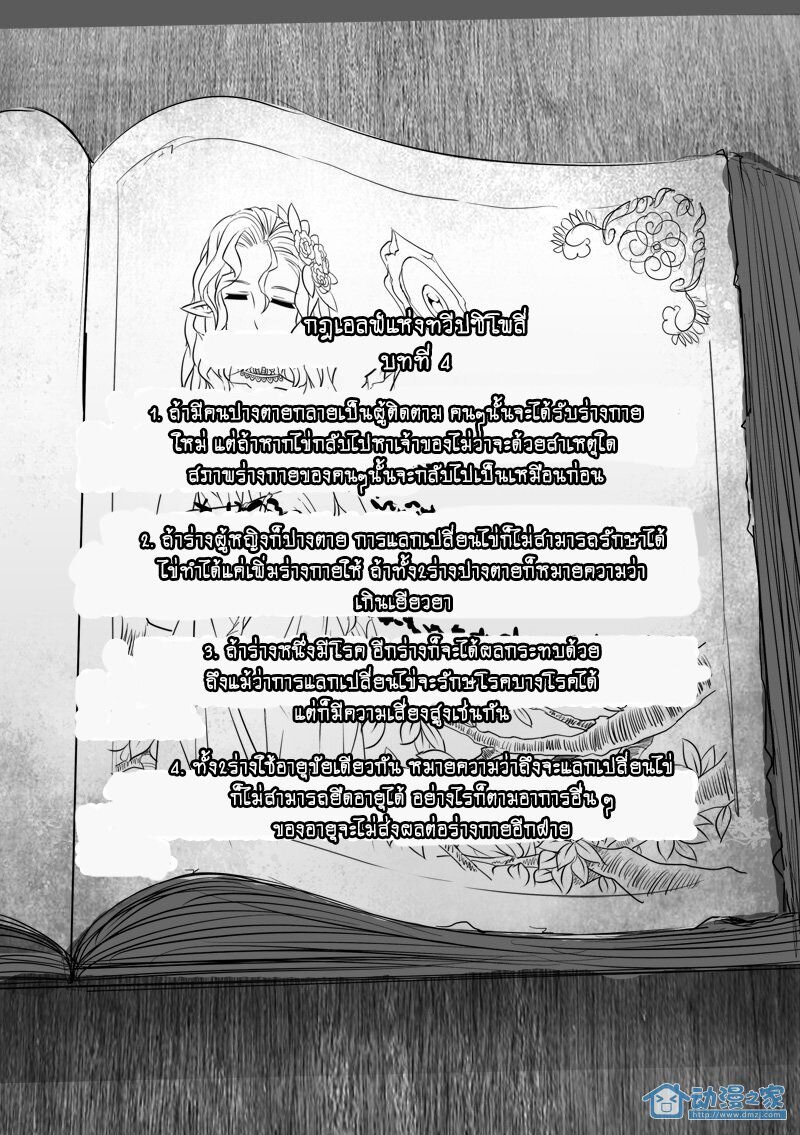 กฎเอลฟ์แห่งทวีปซิโพลี่
บทที่ 4
1. ถ้ามีคนปางตายกลายเป็นผู้ติดตาม คนๆนั้นจะได้รับร่างกาย
ใหม่ แต่ถ้าหากไข่กลับไปหาเจ้าของไม่ว่าจะด้วยสาเหตุใด
สภาพร่างกายของคนๆนั้นจะกลับไปเป็นเหมือนก่อน
2. ถ้าร่างผู้หญิงก็ปางตาย การแลกเปลี่ยนไข่ก็ไม่สามารถรักษาได้
ไข่ทำได้แค่เพิ่มร่างกายให้ ถ้าทั้ง2ร่างปางตายก็หมายความว่า
เกินเยียวยา
3. ถ้าร่างหนึ่งมีโรค อีกร่างก็จะได้ผลกระทบด้วย
ถึงแม้ว่าการแลกเปลี่ยนไข่จะรักษโรคบางโรคได้
แต่ก็มีความเสี่ยงสูงเช่นกัน
4. ทั้ง2ร่างใช้อายุขัยเดียวกัน หมายความว่าถึงจะแลกเปลี่ยนไข่
ก็ไม่สามารถยืดอายุได้ อย่างไรก็ตามอาการอื่น ๆ
ของอายุจะไม่ส่งผลต่อร่างกายอีกฝ่าย
动漫之家
http://www.dmzj.com